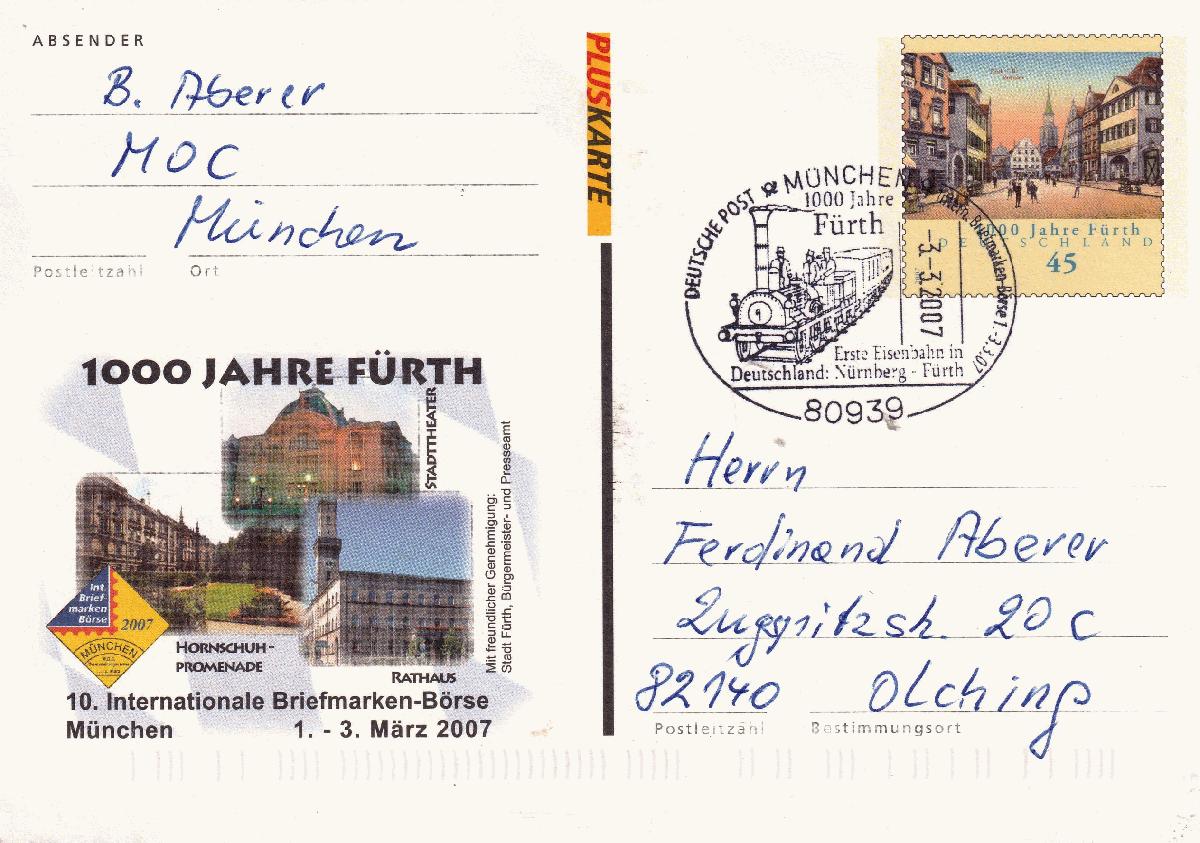 ABSENDER
B. Aberer
MOC
München
Postleitzahl Ort
PLUSKARTE
1000 Jahre Fürth
DEUTSCHLAND
45
DEUTSCHE POST MÜNCHEN Intern. Briefmarken-Börse 1.-3.3.07
1000 Jahre
Fürth
-3.-3.2007
Erste Eisenbahn in
Deutschland: Nürnberg - Fürth
80939
1000 JAHRE FÜRTH
STADTTHEATER
HORNSCHUH-
PROMENADE
RATHAUS
Mit freundlicher Genehmigung:
Stadt Fürth, Bürgermeister- und Presseamt
Int.
Brief-
marken
Börse
2007
MÜNCHEN
10. Internationale Briefmarken-Börse
München 1. - 3. März 2007
Herrn
Ferdinand Aberer
Zugspitzstr. 20 c
82140 Olching
Postleitzahl Bestimmungsort